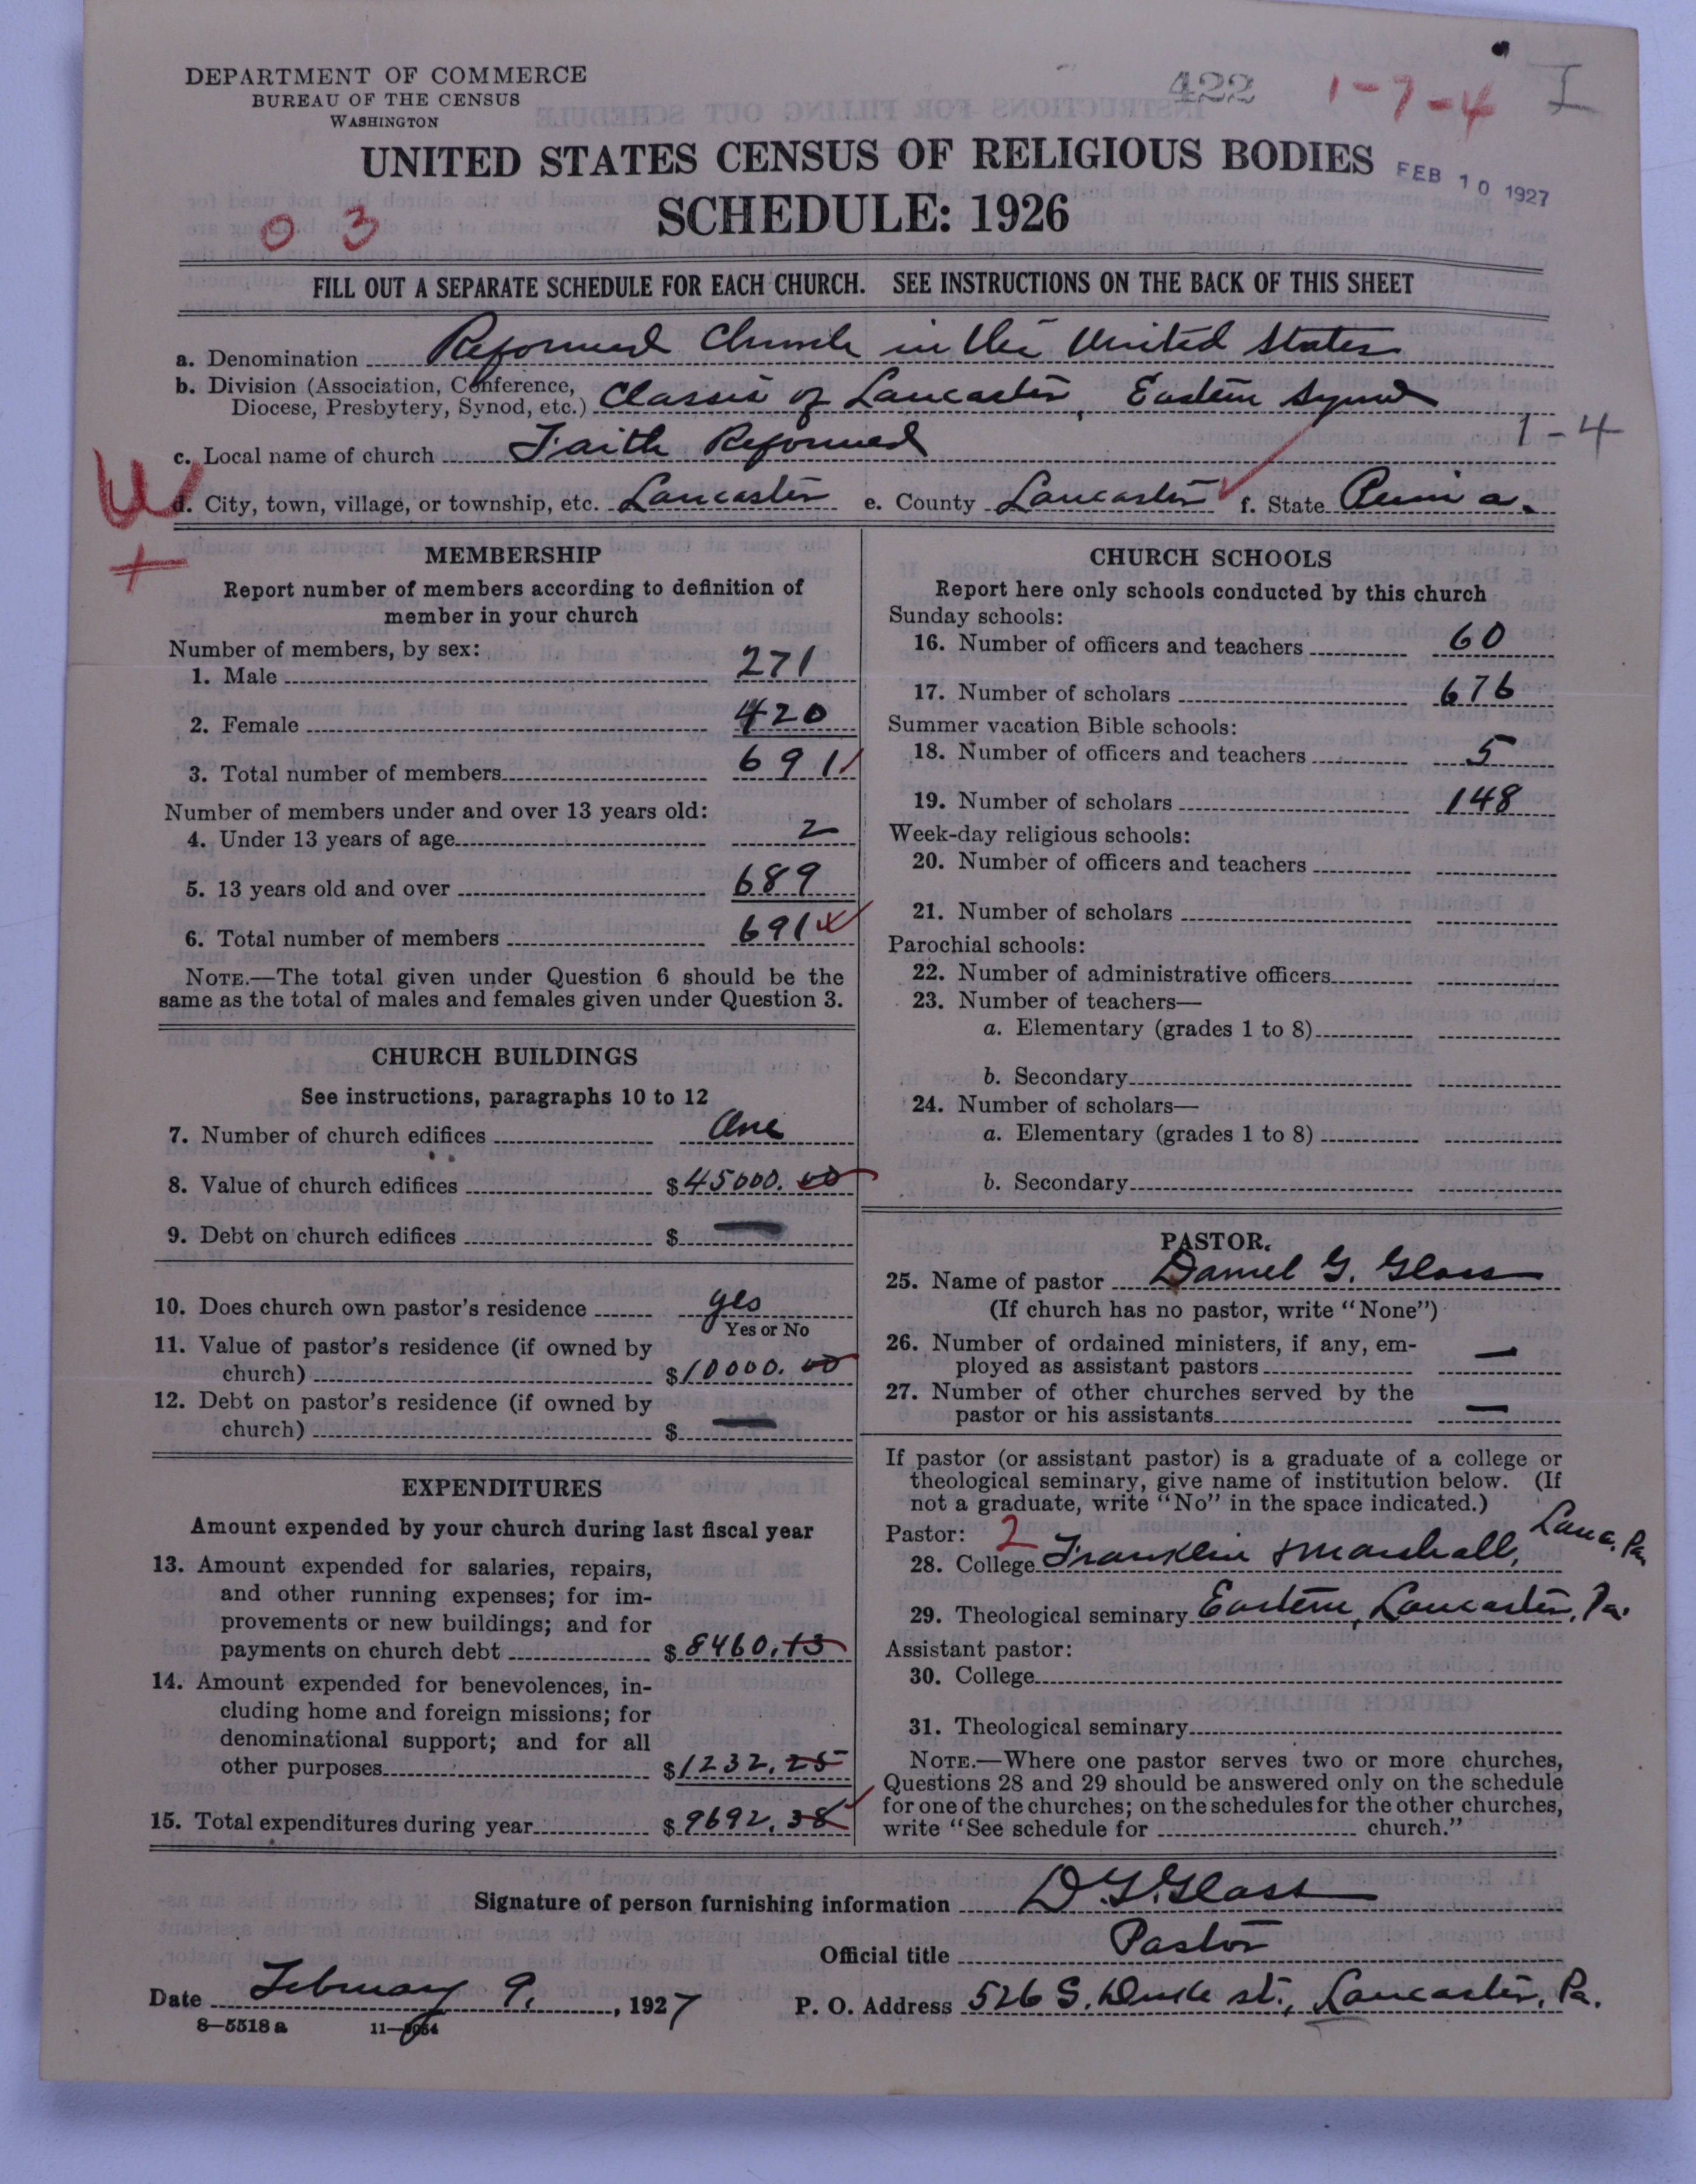 DEPARTMENT OF COMMERCE
BUREAU OF THE CENSUS
WASHINGTON
422 1-7-4 I
UNITED STATES CENSUS OF RELIGIOUS BODIES
FEB 10 1927
SCHEDULE: 1926
0 3
FILL OUT A SEPARATE SCHEDULE FOR EACH CHURCH. SEE INSTRUCTIONS ON THE BACK OF THIS SHEET
a. Denomination Reformed Church in the United States
b. Division (Association, Conference,
Diocese, Presbytery, Synod, etc.) Classis of Lancaster, Eastern Synod
1-4
c. Local name of church Faith Reformed
d. City, town, village, or township, etc. Lancaster e. County Lancaster f. State Penn'a.
MEMBERSHIP
Report number of members according to definition of
member in your church
Number of members, by sex:
1. Male 271
2. Female 420
3. Total number of members 691
Number of members under and over 13 years old:
4. Under 13 years of age 2
5. 13 years old and over 689
6. Total number of members 691
NOTE.—The total given under Question 6 should be the
same as the total of males and females given under Question 3.
CHURCH BUILDINGS
See instructions, paragraphs 10 to 12
7. Number of church edifices One
8. Value of church edifices $45000.00
9. Debt on church edifices $ —
10. Does church own pastor's residence yes
Yes or No
11. Value of pastor's residence (if owned by
church) $10000.00
12. Debt on pastor's residence (if owned by
church) $ —
EXPENDITURES
Amount expended by your church during last fiscal year
13. Amount expended for salaries, repairs,
and other running expenses; for im-
provements or new buildings; and for
payments on church debt $8460.13
14. Amount expended for benevolences, in-
cluding home and foreign missions; for
denominational support; and for all
other purposes $1232.25
15. Total expenditures during year $9692.38
CHURCH SCHOOLS
Report here only schools conducted by this church
Sunday schools:
16. Number of officers and teachers 60
17. Number of scholars 676
Summer vacation Bible schools:
18. Number of officers and teachers 5
19. Number of scholars 148
Week-day religious schools:
20. Number of officers and teachers
21. Number of scholars
Parochial schools:
22. Number of administrative officers
23. Number of teachers—
a. Elementary (grades 1 to 8)
b. Secondary
24. Number of scholars—
a. Elementary (grades 1 to 8)
b. Secondary
PASTOR.
25. Name of pastor Daniel G. Glass
(If church has no pastor, write "None")
26. Number of ordained ministers, if any, em-
ployed as assistant pastors —
27. Number of other churches served by the
pastor or his assistants —
If pastor (or assistant pastor) is a graduate of a college or
theological seminary, give name of institution below. (If
not a graduate, write "No" in the space indicated.)
Pastor: 2
28. College Franklin & Marshall, Lanc. Pa.
29. Theological seminary Eastern, Lancaster, Pa.
Assistant pastor:
30. College
31. Theological seminary
NOTE.—Where one pastor serves two or more churches,
Questions 28 and 29 should be answered only on the schedule
for one of the churches; on the schedules for the other churches,
write "See schedule for church."
Signature of person furnishing information D. G. Glass
Official title Pastor
Date February 9, 1927 P. O. Address 526 S. Duke st., Lancaster, Pa.
8—5518 a